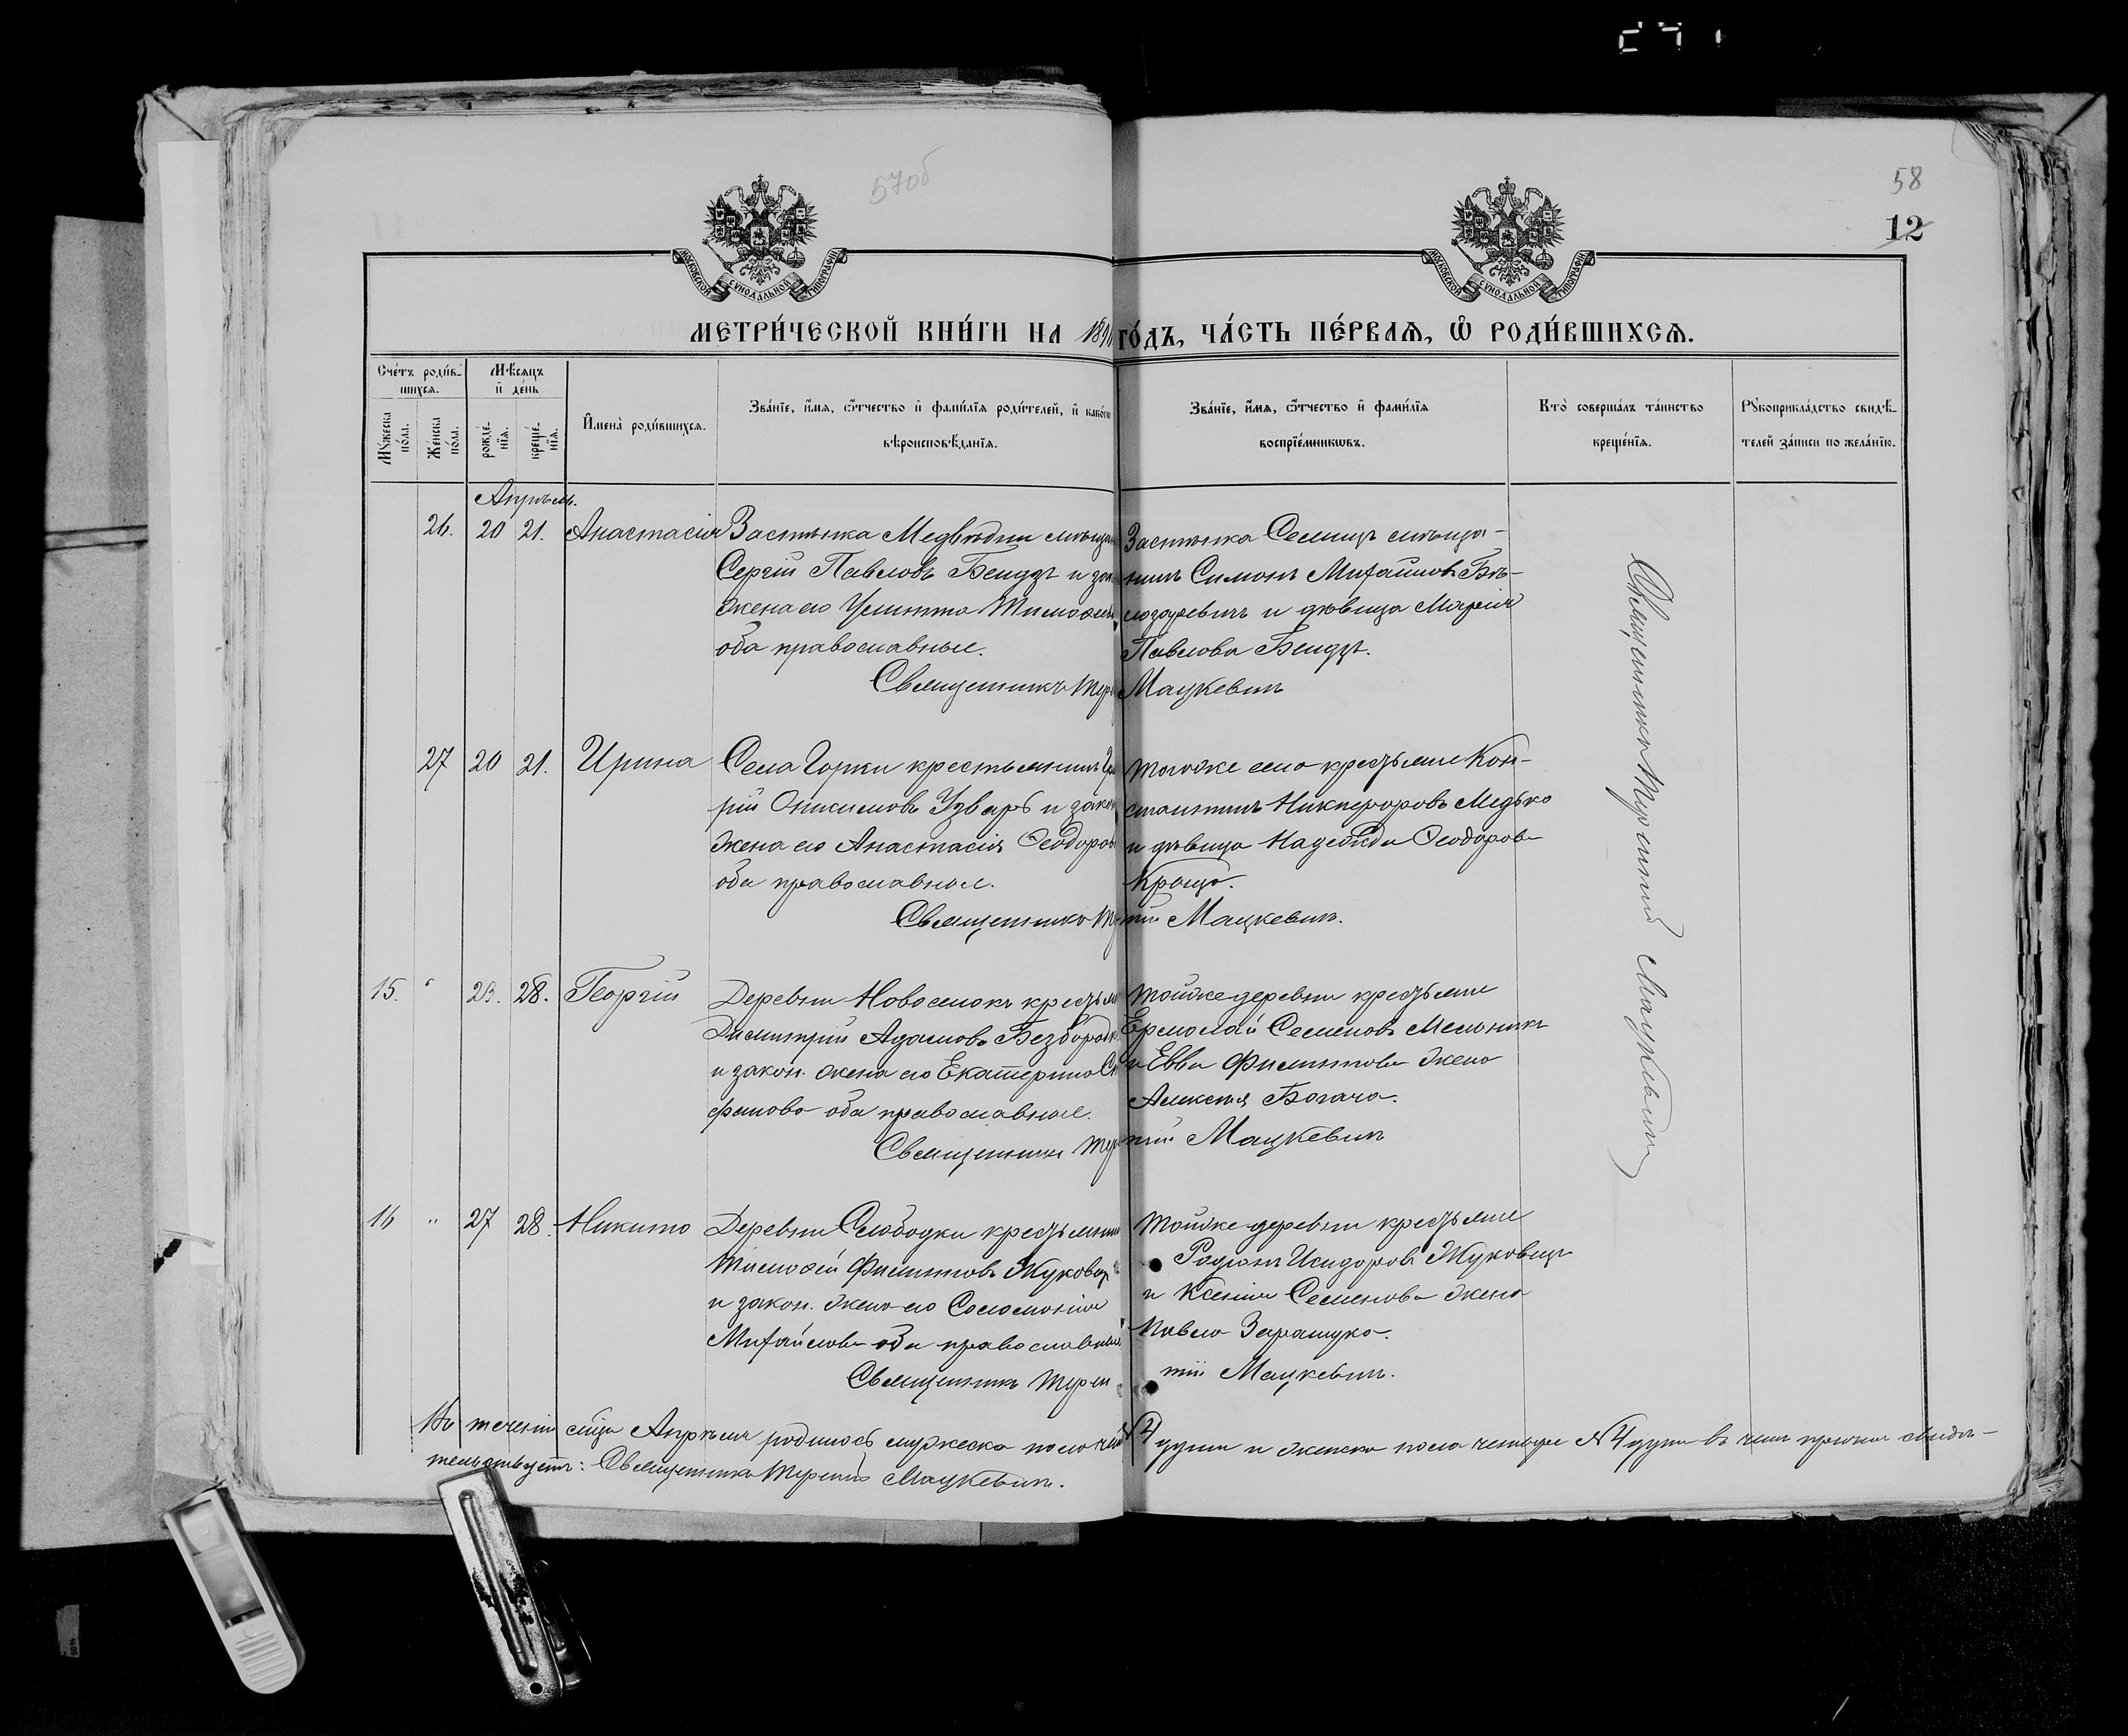 57об
58
12
МОСКОВСКОЙ СѴНОДАЛЬНОЙ ТИПОГРАФІИ
МОСКОВСКОЙ СѴНОДАЛЬНОЙ ТИПОГРАФІИ
МЕТРИ́ЧЕСКОЙ КНИ́ГИ НА 189 ГО́ДЪ, ЧА́СТЬ ПЕ́РВАѦ, Ѡ҆ РОДИ́ВШИХСѦ.
Сче́тъ роди́в-
шихсѧ.
Мꙋ́жеска по́ла.
Же́нска по́ла.
Мѣ́сѧцъ и҆ де́нь
рожде́-нїѧ.
креще́-нїѧ.
И҆мена̀ роди́вшихсѧ.
Зва́нїе, и҆́мѧ, ѻ҆́тчество и҆ фами́лїѧ роди́телей, и҆ како́гѡ
вѣроисповѣ́данїѧ.
Зва́нїе, и҆́мѧ, ѻ҆́тчество и҆ фами́лїѧ
воспрїе́мникѡвъ.
Кто̀ соверша́лъ та́инство
креще́нїѧ.
Рꙋкоприкла́дство свидѣ́-
телей за́писи по жела́нїю.
Апрѣль.
26. 20 21. Анастасія Застѣнка Медвѣдни мѣщан
Сергій Павловъ Бендзъ и зак
жена его Улинта Тимоѳеев
оба православные.
Священникъ Тер
Застѣнка Селищъ мѣща-
нинъ Симонъ Михайловъ Бѣ-
лозаревичъ и дѣвица Марія
Павлова Бендзъ.
Мацкевичъ
27 20 21. Ирина Села Горки крестьянинъ
рій Онисимовъ Узваръ и закон
жена его Анастасія Ѳеодоров
оба православные.
Священникъ Те
Тогоже села крестьяне Кон-
стантинъ Никифоровъ Медько
и дѣвица Надежда Ѳеодорова
Кроща.
тій Мацкевичъ.
15. " 23. 28. Георгій Деревни Новоселокъ крестьян
Димитрій Адамовъ Безбород
и закон. жена его Екатерина Сте
фанова оба православные.
Священникъ Тере
Тойже деревни крестьяне
Ермолай Семеновъ Мельникъ
и Евва Филиппова жена
Алексѣя Богача.
тій Мацкевичъ
16 " 27 28. Никита Деревни Слободки крестьянинъ
Тимоѳей Филипповъ Жуковец
и закон. жена его Соломонія
Михайлова оба православные.
Священникъ Терен
Тойже деревни крестьяне
Родіонъ Исидоровъ Жуковецъ
и Ксенія Семенова жена
Павла Заращука.
тій Мацкевичъ.
Священникъ Терентій Мацкевичъ
Въ теченіи мца Апрѣля родилось мужеска пола четы №4 души и женска пола четыре №4 души въ чемъ причтъ свидѣ-
тельствуетъ: Священникъ Терентій Мацкевичъ.